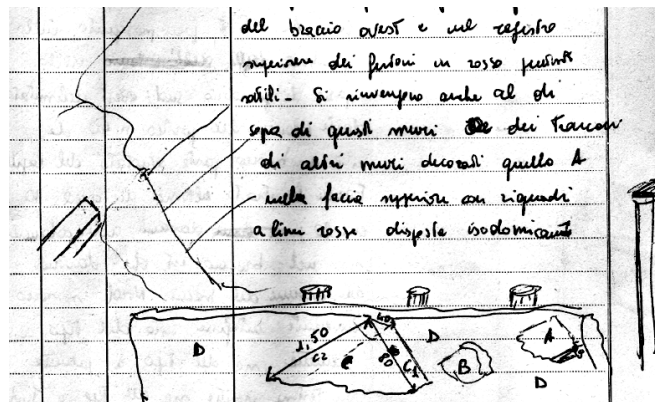 del braccio ovest e nel registro
superiore dei festoni in rosso piuttosto
sottili - Si rinvengono anche al di
sopra di questi muri dei tronconi
di altri muri decorati quello A
nella faccia superiore con riquadri
a linee rosse disposte isodomicamente
D
1,50
C2
C
40
80
C1
D
B
A
D